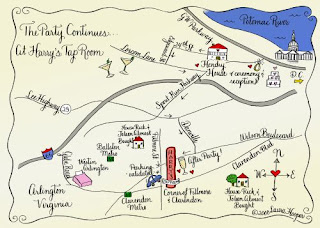 The Party Continues...
At Harry's Tap Room
G.W. Parkway
Potomac River
Lorcom Lane
Hendry
House
ceremony
reception
D.C.
Spout Run Parkway
Lee Highway
29
House Rick &
Bought
Ballston
Metro
Westin
Arlington
Parking
validated
Clarendon
Metro
After Party!
Wilson Boulevard
Clarendon Blvd.
Corner of Fillmore
& Clarendon
House Rick &
Bought
N
W
E
S
Arlington
Virginia